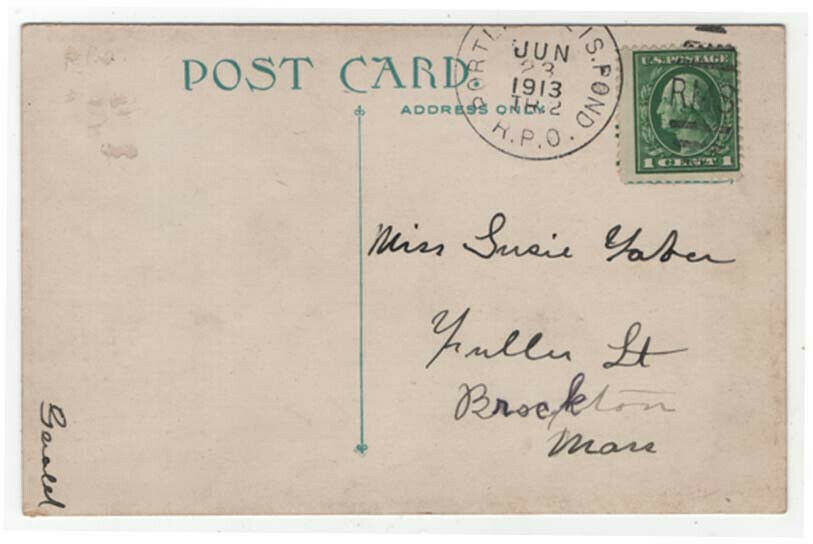 POST CARD
ADDRESS ONLY
PORTL IS. POND
JUN
23
1913
TR.2
R.P.O.
U.S. POSTAGE
1 1
Miss Susie Yaber
Fuller St
Brockton
Mass
Gerald